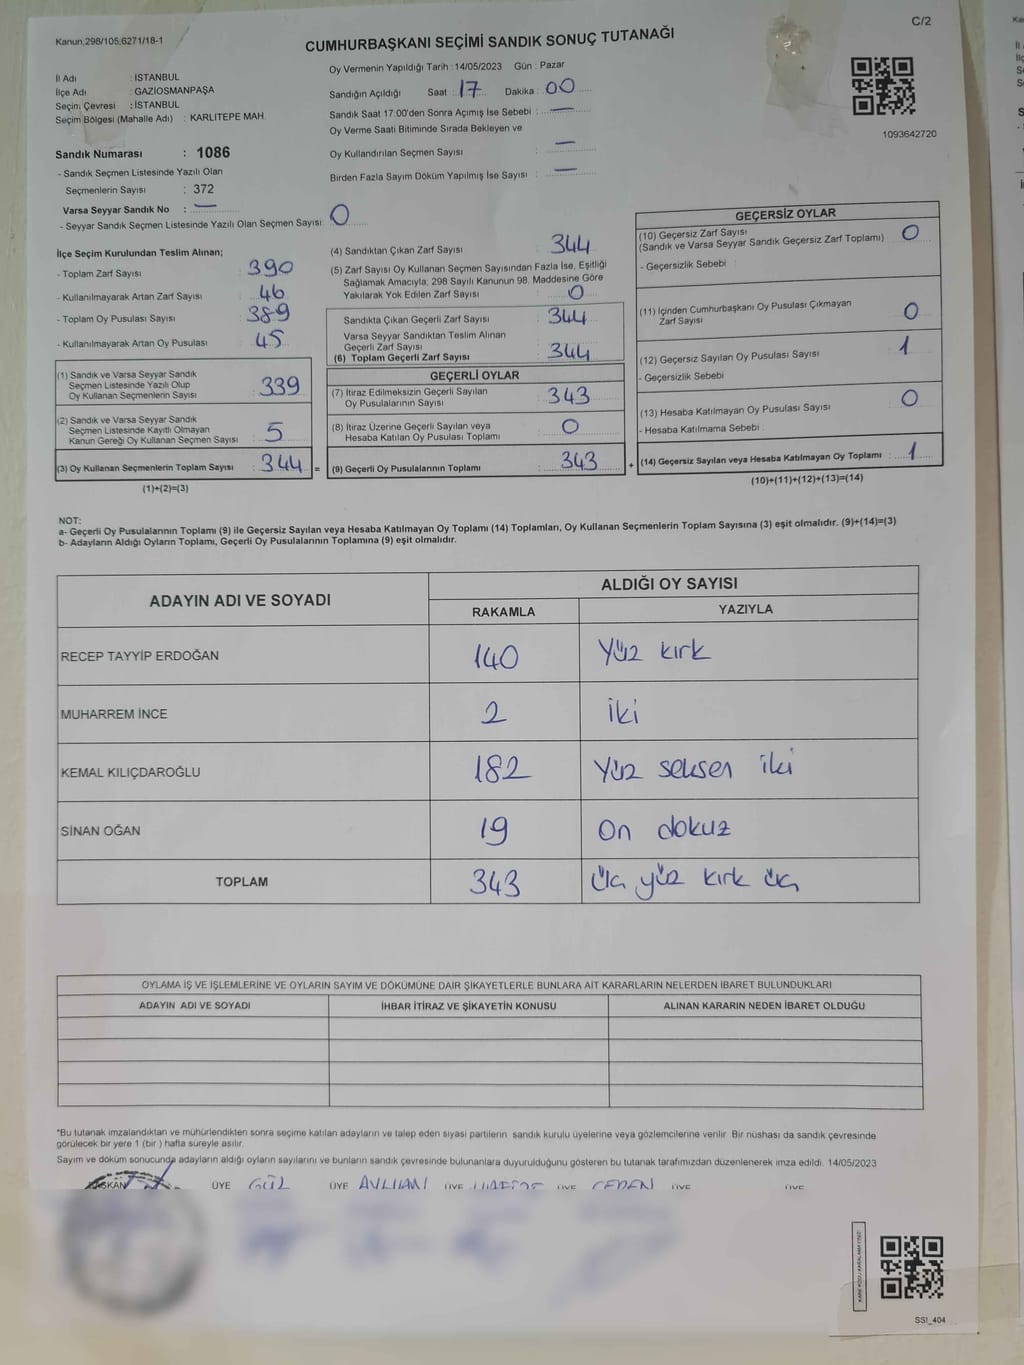 C/2
Kanun;298/105;6271/18-1
CUMHURBAŞKANI SEÇİMİ SANDIK SONUÇ TUTANAĞI
İl Adı : İSTANBUL
İlçe Adı : GAZİOSMANPAŞA
Seçim Çevresi : İSTANBUL
Seçim Bölgesi (Mahalle Adı) : KARLITEPE MAH.
Oy Vermenin Yapıldığı Tarih : 14/05/2023 Gün : Pazar
Sandığın Açıldığı Saat : 17 Dakika : 00
Sandık Saat 17:00'den Sonra Açımış İse Sebebi : —
Oy Verme Saati Bitiminde Sırada Bekleyen ve
Oy Kullandırılan Seçmen Sayısı : —
Birden Fazla Sayım Döküm Yapılmış İse Sayısı : —
1093642720
Sandık Numarası : 1086
- Sandık Seçmen Listesinde Yazılı Olan
Seçmenlerin Sayısı : 372
Varsa Seyyar Sandık No : —
- Seyyar Sandık Seçmen Listesinde Yazılı Olan Seçmen Sayısı : 0
İlçe Seçim Kurulundan Teslim Alınan;
- Toplam Zarf Sayısı : 390
- Kullanılmayarak Artan Zarf Sayısı : 46
- Toplam Oy Pusulası Sayısı : 389
- Kullanılmayarak Artan Oy Pusulası : 45
(1) Sandık ve Varsa Seyyar Sandık
Seçmen Listesinde Yazılı Olup
Oy Kullanan Seçmenlerin Sayısı : 339
(2) Sandık ve Varsa Seyyar Sandık
Seçmen Listesinde Kayıtlı Olmayan
Kanun Gereği Oy Kullanan Seçmen Sayısı : 5
(3) Oy Kullanan Seçmenlerin Toplam Sayısı : 344 =
(1)+(2)=(3)
(4) Sandıktan Çıkan Zarf Sayısı : 344
(5) Zarf Sayısı Oy Kullanan Seçmen Sayısından Fazla İse, Eşitliği
Sağlamak Amacıyla; 298 Sayılı Kanunun 98. Maddesine Göre
Yakılarak Yok Edilen Zarf Sayısı : 0
Sandıkta Çıkan Geçerli Zarf Sayısı : 344
Varsa Seyyar Sandıktan Teslim Alınan
Geçerli Zarf Sayısı
(6) Toplam Geçerli Zarf Sayısı : 344
GEÇERLİ OYLAR
(7) İtiraz Edilmeksizin Geçerli Sayılan
Oy Pusulalarının Sayısı : 343
(8) İtiraz Üzerine Geçerli Sayılan veya
Hesaba Katılan Oy Pusulası Toplamı : 0
(9) Geçerli Oy Pusulalarının Toplamı : 343 +
GEÇERSİZ OYLAR
(10) Geçersiz Zarf Sayısı
(Sandık ve Varsa Seyyar Sandık Geçersiz Zarf Toplamı) : 0
- Geçersizlik Sebebi :
(11) İçinden Cumhurbaşkanı Oy Pusulası Çıkmayan
Zarf Sayısı : 0
(12) Geçersiz Sayılan Oy Pusulası Sayısı : 1
- Geçersizlik Sebebi
(13) Hesaba Katılmayan Oy Pusulası Sayısı : 0
- Hesaba Katılmama Sebebi :
(14) Geçersiz Sayılan veya Hesaba Katılmayan Oy Toplamı : 1
(10)+(11)+(12)+(13)=(14)
NOT:
a- Geçerli Oy Pusulalarının Toplamı (9) ile Geçersiz Sayılan veya Hesaba Katılmayan Oy Toplamı (14) Toplamları, Oy Kullanan Seçmenlerin Toplam Sayısına (3) eşit olmalıdır. (9)+(14)=(3)
b- Adayların Aldığı Oyların Toplamı, Geçerli Oy Pusulalarının Toplamına (9) eşit olmalıdır.
ADAYIN ADI VE SOYADI ALDIĞI OY SAYISI
RAKAMLA YAZIYLA
RECEP TAYYİP ERDOĞAN 140 Yüz kırk
MUHARREM İNCE 2 iki
KEMAL KILIÇDAROĞLU 182 Yüz seksen iki
SİNAN OĞAN 19 On dokuz
TOPLAM 343 Üç yüz kırk üç
OYLAMA İŞ VE İŞLEMLERİNE VE OYLARIN SAYIM VE DÖKÜMÜNE DAİR ŞİKAYETLERLE BUNLARA AİT KARARLARIN NELERDEN İBARET BULUNDUKLARI
ADAYIN ADI VE SOYADI İHBAR İTİRAZ VE ŞİKAYETİN KONUSU ALINAN KARARIN NEDEN İBARET OLDUĞU
*Bu tutanak imzalandıktan ve mühürlendikten sonra seçime katılan adayların ve talep eden siyasi partilerin sandık kurulu üyelerine veya gözlemcilerine verilir. Bir nüshası da sandık çevresinde
görülecek bir yere 1 (bir ) hafta süreyle asılır.
Sayım ve döküm sonucunda adayların aldığı oyların sayılarını ve bunların sandık çevresinde bulunanlara duyurulduğunu gösteren bu tutanak tarafımızdan düzenlenerek imza edildi. 14/05/2023
BAŞKAN ÜYE GÜL ÜYE ÜYE ÜYE ÜYE ÜYE
SSI_404